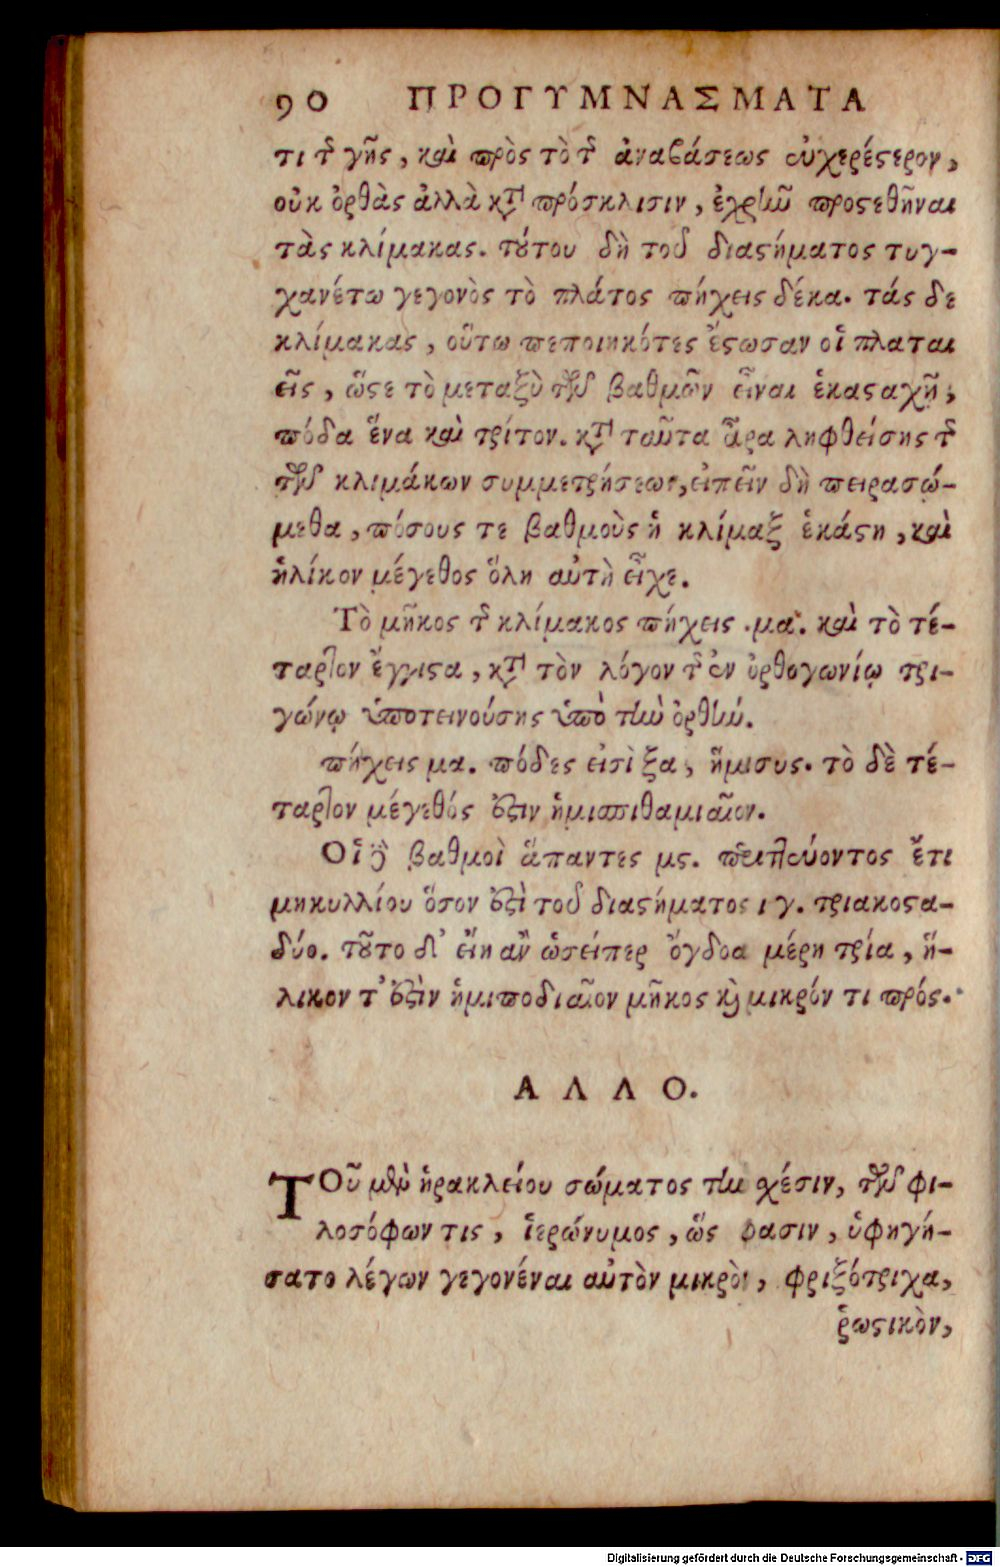 90 ΠΡΟΓΥΜΝΑΣΜΑΤΑ
τι τῆς γῆς, καὶ πρὸς τὸ τῆς ἀναβάσεως εὐχερέστερον,
οὐκ ὀρθὰς ἀλλὰ κατὰ πρόσκλισιν, ἐχρῆν προστεθῆναι
τὰς κλίμακας. τούτου δὴ τοῦ διαστήματος τυγ-
χανέτω γεγονὸς τὸ πλάτος πήχεις δέκα. τάς δε
κλίμακας, οὕτω πεποιηκότες ἔστωσαν οἱ πλαται
εῖς, ὥστε τὸ μεταξὺ τῶν βαθμῶν εἶναι ἑκασταχῆ,
πόδα ἕνα καὶ τρίτον. κατὰ ταῦτα ἆρα ληφθείσης τῆς
τῶν κλιμάκων συμμετρήσεως, εἰπεῖν δὴ πειρασώ-
μεθα, πόσους τε βαθμοὺς ἡ κλίμαξ ἑκάστη, καὶ
ἡλίκον μέγεθος ὅλη αὐτὴ εἶχε.
Τὸ μῆκος τῆς κλίμακος πήχεις .μα. καὶ τὸ τέ-
ταρτον ἔγγιστα, κατὰ τὸν λόγον τῆς ἐν ὀρθογωνίῳ τρι-
γώνῳ ὑποτεινούσης ὑπὸ τὴν ὀρθήν.
πήχεις μα. πόδες εἰσὶ ξα, ἥμισυς. τὸ δὲ τέ-
ταρτον μέγεθός ἐστιν ἡμισπιθαμιαῖον.
Οἱ δὲ βαθμοὶ ἅπαντες μς. περιττεύοντος ἔτι
μηκυλλίου ὅσον ἐστὶ τοῦ διαστήματος ιγ. τριακοστα-
δύο. τοῦτο δ' εἴη ἂν ὡσείπερ ὄγδοα μέρη τρία, ἡ-
λικον τ' ἐστὶν ἡμιποδιαῖον μῆκος καὶ μικρόν τι πρός.
ΑΛΛΟ.
ΤΟῦ μὲν ἡρακλείου σώματος τὴν σχέσιν, τῶν φι-
λοσόφων τις, ἱερώνυμος, ὥς φασιν, ὑφηγή-
σατο λέγων γεγονέναι αὐτὸν μικρὸν, φριξότριχα,
ῥωστικὸν,
Digitalisierung gefördert durch die Deutsche Forschungsgemeinschaft - DFG